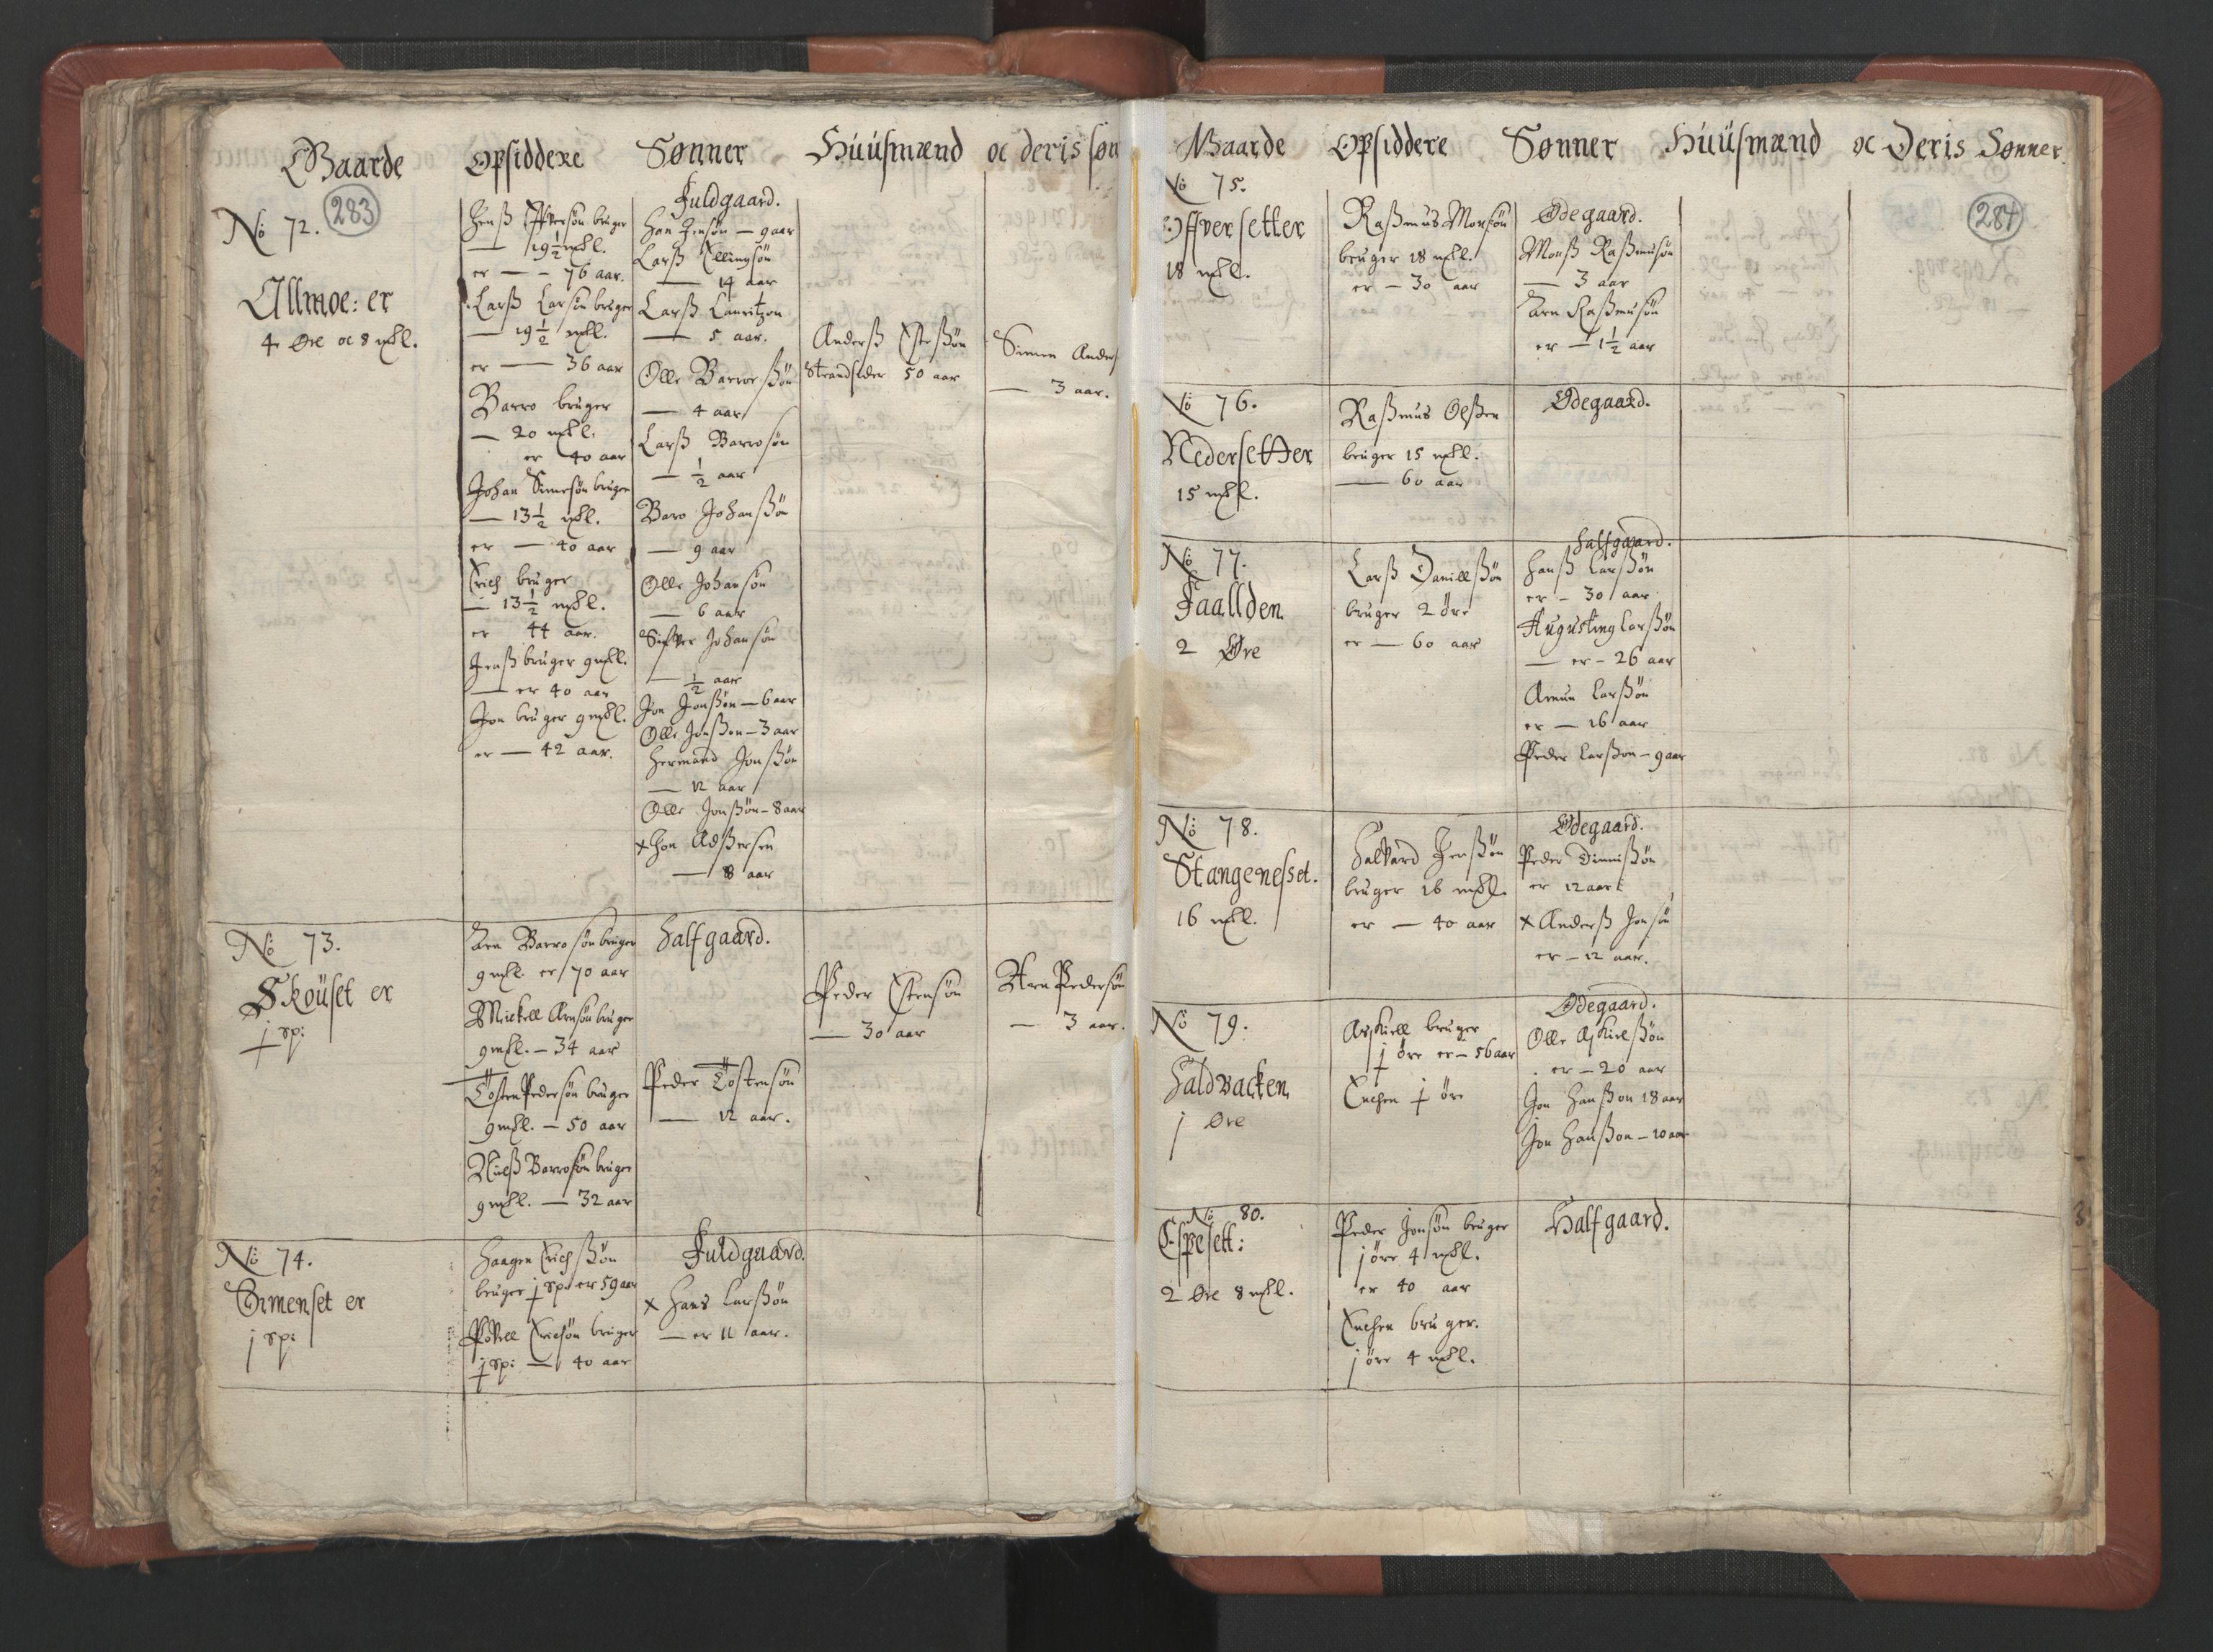 Gaarde Opsiddere Sønner Huusmænd oc deris søn
No 72. 283
Allmoe: er
4 Øre oc 8 mkl.
Jenß Iffversøn bruger
— 19½ mkl.
er — — 76 aar.
Larß Larsøn bruger
— 19½ mkl.
er — 36 aar
Barro bruger
— 20 mkl.
er 40 aar
Johan Simesøn bruger
— 13½ mkl.
er — 40 aar
Erich bruger
— 13½ mkl.
er 44 aar.
Jenß bruger 9 mkl.
— er 40 aar
Jon bruger 9 mkl.
er — 42 aar.
Fuldgaard.
Han Jensøn — 9 aar
Larß Ellingsøn
— 14 aar
Larß Lauritzon
— 5 aar.
Olle Barroe ßøn
— 4 aar
Larß Barrosøn
— ½ aar
Baro Johanßøn
— 9 aar
Olle Johansøn
— 6 aar
Siffver Johansøn
— ½ aar
Jon Jonßøn — 6 aar
Olle Jonßøn — 3 aar
Hermand Jonßøn
— 12 aar
Olle Jonßøn — 8 aar
x Jon
— 8 aar
Anderß Osteßøn
Strandsider 50 aar
Simen Anders
— 3 aar.
No 73.
Skouset er
j sp:
Arn Barrosøn bruger
9 mkl. er 70 aar
Mickell Arnsøn bruger
9 mkl. — 34 aar
Tosten Pedersøn bruger
9 mkl. — 50 aar
Nielß Barrosøn bruger
9 mkl. — 32 aar
Halfgaard.
Peder Tostensøn
— 12 aar.
Peder Ostensøn
— 30 aar
Arn Pedersøn
— 3 aar.
No 74.
Simenset er
j sp:
Haagen Erichßøn
bruger j sp: er 59 aar
Povell Ericsøn bruger
j sp: — 40 aar
Fuldgaard.
x Hans Larßøn
— er 11 aar.
Gaarde Opsiddere Sønner Huusmænd oc Deris Sønner
284
No 75.
Offversetter
18 mkl.
Raßmus Monsøn
bruger 18 mkl.
er — 30 aar
Ødegaard.
Monß Raßmusøn
— 3 aar
Arn Raßmusøn
er — 1½ aar
No 76.
Nedersetter
15 mkl.
Raßmus Olßen
bruger 15 mkl.
— 60 aar
Ødegaard.
No 77.
Faallden
2 Øre
Larß Daniellßøn
bruger 2 øre
er — 60 aar
Halfgaard.
Hanß Larßøn
er — 30 aar
Augusting Larßøn
— er — 26 aar
Amun Larßøn
er — 16 aar
Peder Larßøn — 9 aar
No 78.
Stangenesset.
16 mkl.
Halvard Jenßøn
bruger 16 mkl.
er — 40 aar
Ødegaard.
Peder Dinnißøn
er 12 aar
x Anderß Jonsøn
er — 12 aar.
No 79.
Haldbacken
j Øre
Askiell bruger
j øre er — 56 aar
Enchen j øre
Ødegaard.
Olle Askielßøn
er — 20 aar
Jon Hanßøn 18 aar
Jon Hanßøn — 10 aar
No 80.
Espesett:
2 Øre 8 mkl.
Peder Jonsøn bruger
j øre 4 mkl.
er 40 aar
Enchen bruger.
j øre 4 mkl.
Halfgaard.